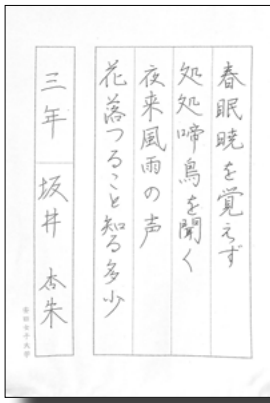 春眠暁を覚えず
処処啼鳥を聞く
夜来風雨の声
花落つること知る多少
三年 坂井 杏朱
安田女子大学